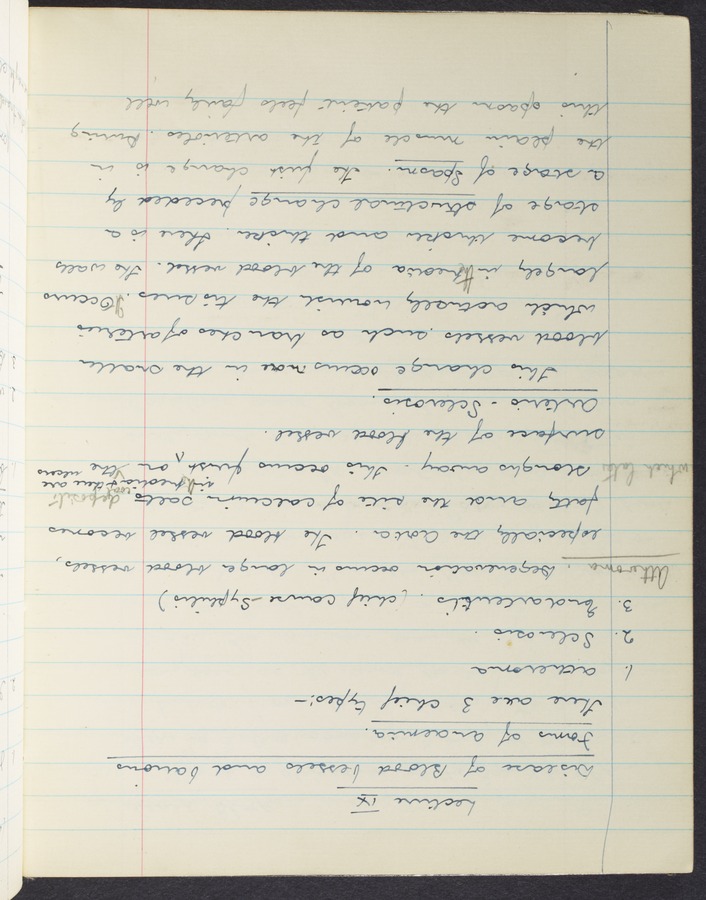 Lecture IX
Disease of Blood Vessels and Various
Forms of anaemia.
There are 3 chief types:-
1. atheroma
2. Sclerosis.
3. Endarteritis. (chief cause - Syphilis)
Atheroma. Degeneration occurs in larger blood vessels,
especially the Aorta. The blood vessel becomes
fatty and the site of calcium salts deposits
which later sloughs away. This occurs first on the
surface of the blood vessel.
Arterio-Sclerosis.
This change occurs more in the smaller
blood vessels such as branches of arteries
which actually nourish the tissues. It Occurs
largely in the media of the blood vessel. The walls
become thicker and thicker. There is a
stage of structural change preceded by
a stage of Spasm. The first change is in
the plain muscle of the arterioles. During
this spasm the patient feels fairly well